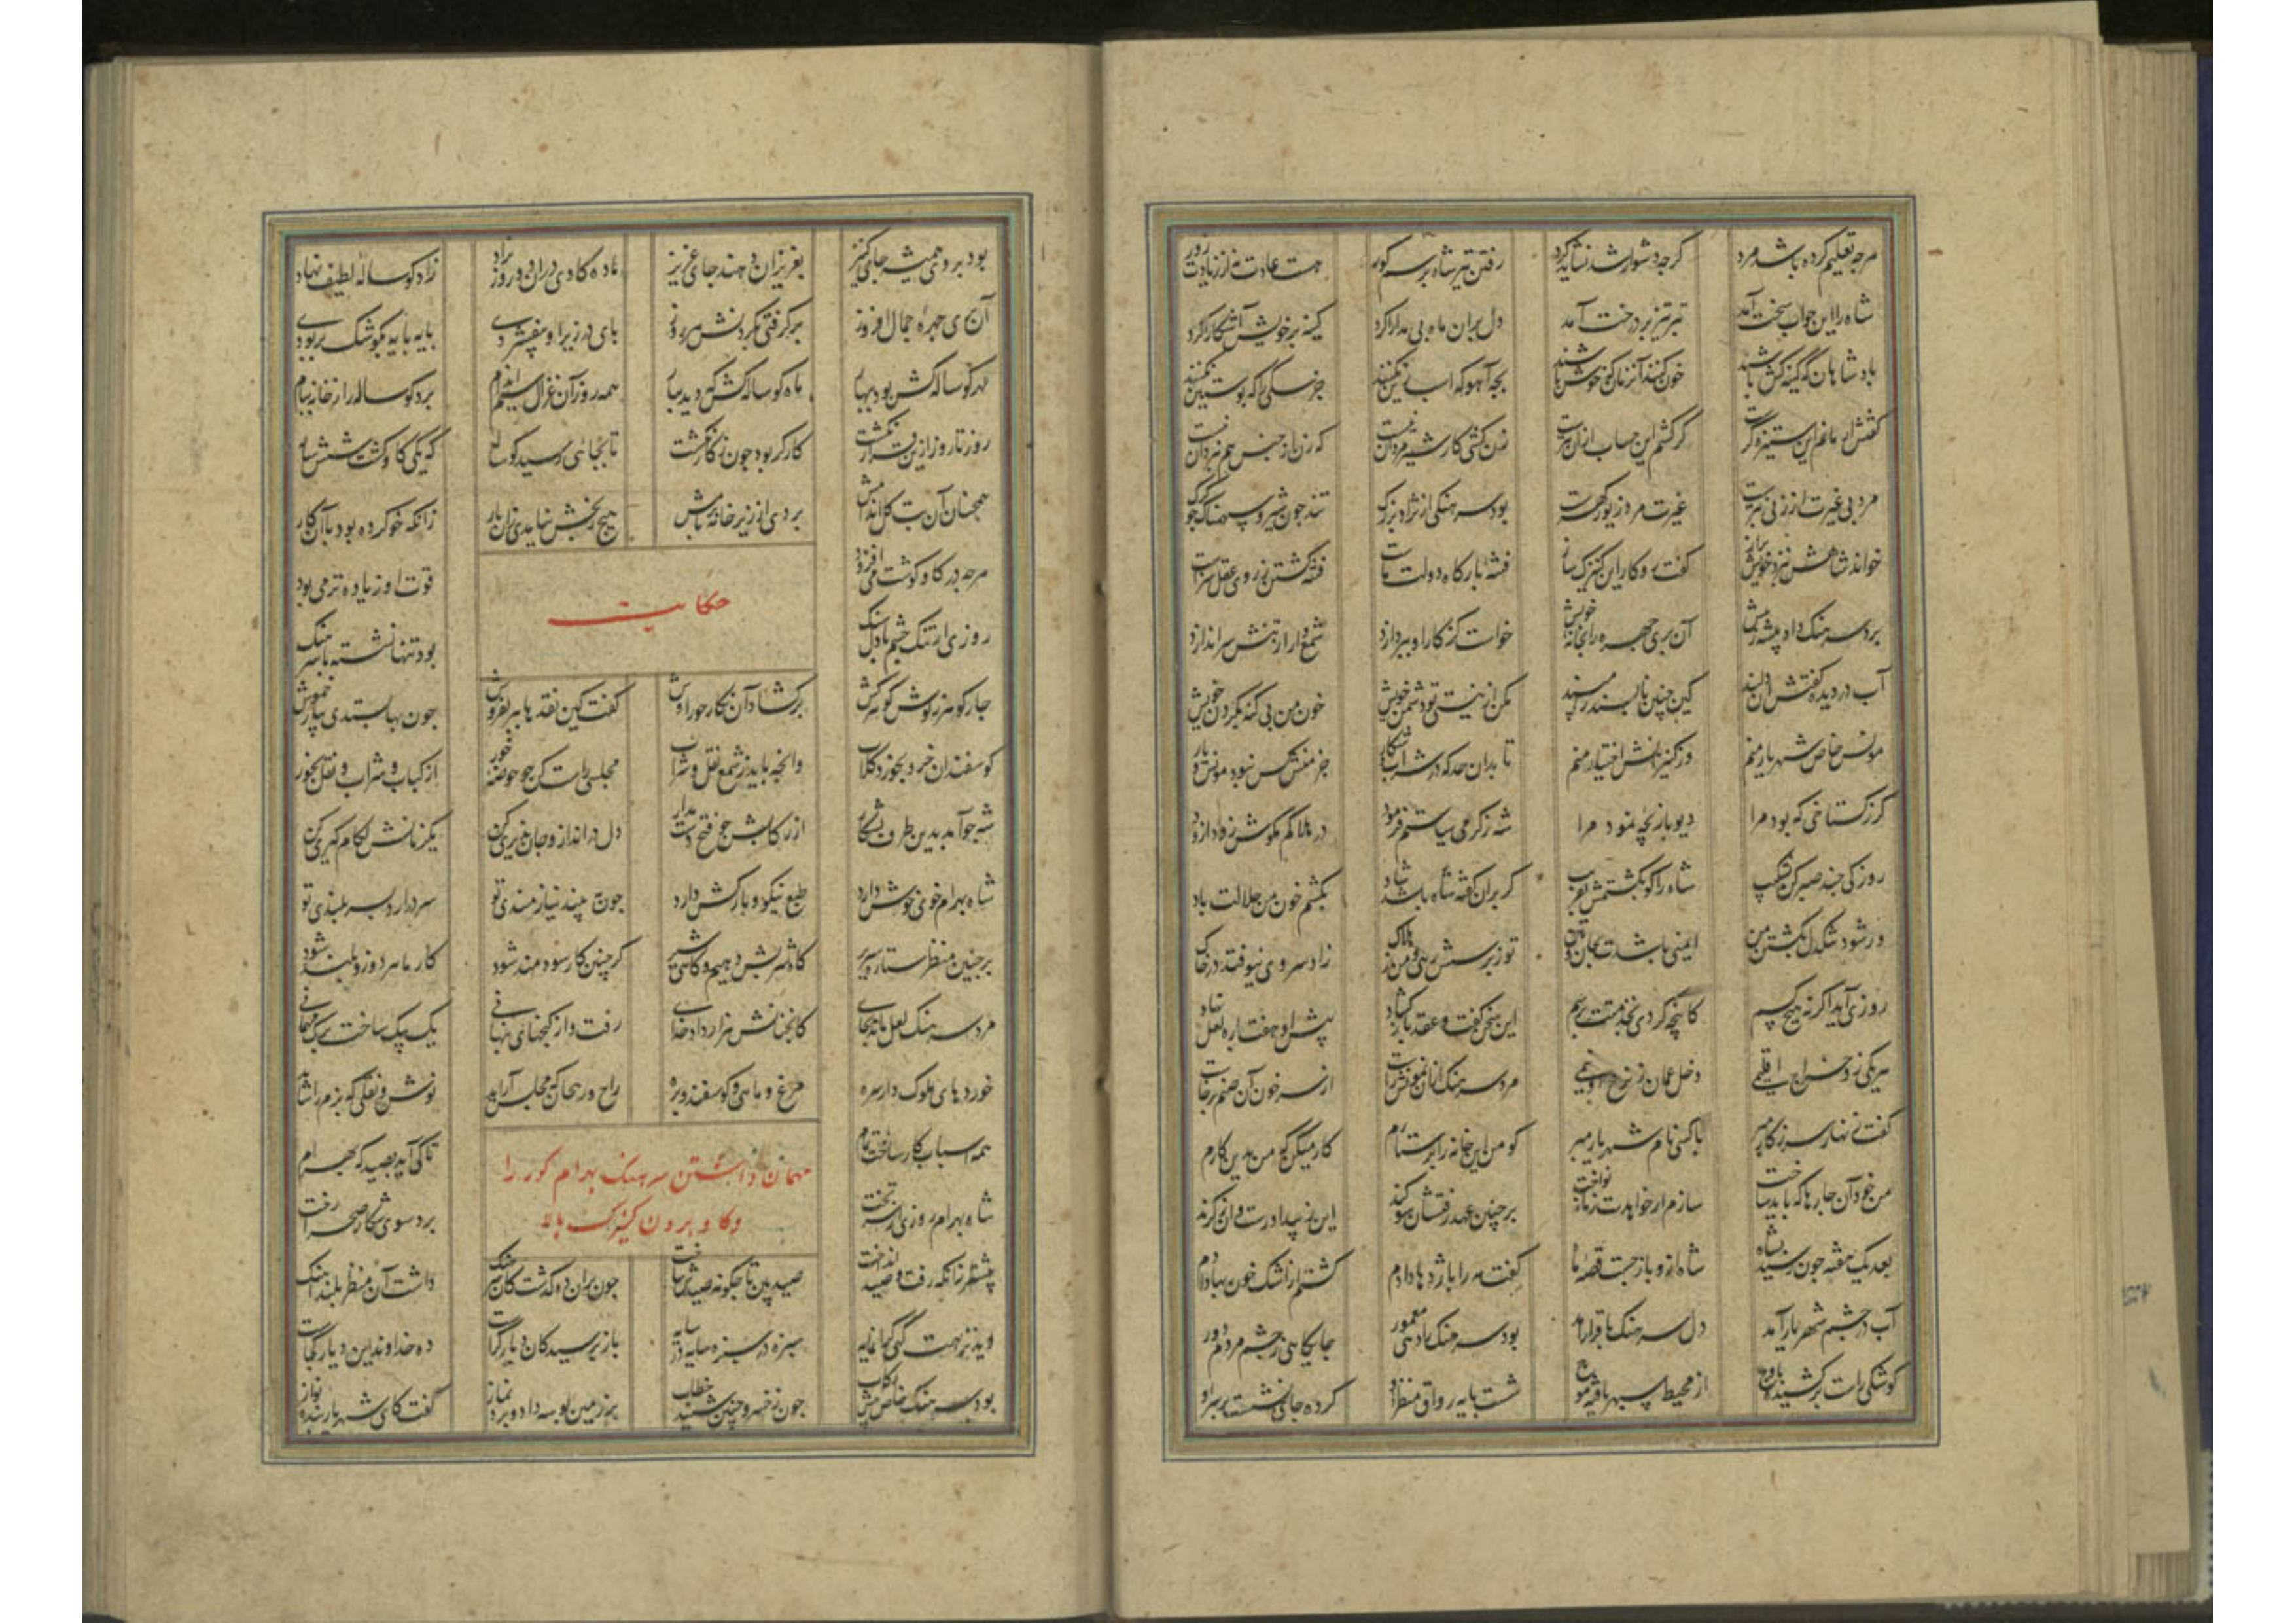 هرچه تعلیم کرده باشد مرد گرچه دشوار شد نشاید کرد رفتن تیر شاه بر سم گور هست عادت نه از زیادت زور
شاه را این جواب سخت آمد تبر تیز بر درخت آمد دل بران ماه بی مدارا کرد کینه بر خویش آشکارا کرد
پادشاهان که کینه کش باشند خون کنند آن زمان که خوش باشند بچه آهو که اسب زین نکنند جز سگی را که پوستین نکنند
گفتش ار مانم این ستیزه گرست گر کشم این حساب ازان بترست زن کشی کار شیر مردان نیست که زن از جنس هم نبردان نیست
مرد بی غیرت از زنی بترست غیرت مرد زیور گهرست بود سرهنگی از نژاد بزرگ تند چون شیر و سهمناک چو گرگ
خواند شاهنشهش نزد خویش براز گفت رو کار این کنیزک ساز فتنه بارگاه دولت ماست فتنه کشتن ز روی عقل سزاست
برد سرهنگ داد پیشه ز پیش آن پری چهره را بخانه خویش خواست کز کار او بپردازد شمع وار از تنش سر اندازد
آب در دیده گفتش آن دلبند کین چنین ناپسند را مپسند مکن ار نیستی تو دشمن خویش خون من بی گنه بگردن خویش
مونس خاص شهریار منم وز کنیزانش اختیار منم تا بدان حد که در شراب و شکار جز منش کس نبود مونس و یار
گر ز گستاخی که بود مرا دیو بازیچه نمود مرا شه ز گرمی سیاستم فرمود در هلاکم مکوش زودازود
روزکی چند صبر کن بشکیب شاه را گو بکشتمش بفریب گر بران گفته شاه باشد شاد بکشم خون من حلالت باد
ور شود تنگدل بکشتن من ایمنی باشدت بجان و بتن تو ز پرسش رهی و من ز هلاک زاد سروی نیوفتد در خاک
روزی آید اگرچه هیچ کسم کانچه کردی بخدمتت برسم این سخن گفت و عقد باز گشاد پیش او هفت پاره لعل نهاد
هر یکی زو خراج اقلیمی دخل عمان ز نرخ او نیمی مرد سرهنگ ازان نمونش راست از سر خون آن صنم برخاست
گفت زنهار سر ز کار مبر با کسی نام شهریار مبر گو من این خانه را پرستارم کار میکن که من بدین کارم
من خود آن چارها که باید ساخت سازم ار خواهدت زمانه نواخت بر چنین عهد رفتشان سوگند این ز بیداد رست و آن ز گزند
بعد یک هفته چون رسید بشاه شاه ازو باز جست قصه ماه گفت مه را باژدها دادم کشتم از اشک خون بها دادم
آب در چشم شهریار آمد دل سرهنگ با قرار آمد بود سرهنگ را دهی معمور جایگاهی ز چشم مردم دور
کوشکی راست برکشیده باوج از محیط سپهر یافته موج شست پایه رواق منظر او کرده جای نشست بر سر او
بود بر وی همیشه جای کنیز بعزیزان دهند جای عزیز ماده گاوی دران دو روز بزاد زاد گوساله لطیف نهاد
آن پری چهره جمال افروز برگرفتی بگردنش هر روز پای در زیر او بیفشردی پایه پایه بکوشک بربردی
مهر گوساله کش بود ببهار ماه گوساله کش که دید بیار همه روز آن غزال سیم اندام برد گوساله را ز خانه ببام
روز تا روز ازین قرار نگشت کارگر بود چون ز کار نگشت تا بجائی رسید گوساله که یکی گاو گشت شش ساله
همچنان آن بت گل اندامش بردی از زیر خانه بر بامش هیچ رنجش نیامدی زان بار زانکه خو کرده بود با آن کار
هرچه در گاو گوشت می افزود قوت او زیاده تر می بود
حکایت
روزی آن تنگ چشم با دل تنگ بود تنها نشسته با سرهنگ
چار گوهر ز گوش گوهر کش برگشاد آن نگار حورا وش گفت کین نقدها ببر بفروش چون بها بستدی بیار خموش
گوسفندان خر و بخور و گلاب وانچه باید ز شمع نقل و شراب مجلسی راست کن چو روضه حور از کباب و شراب و نقل و بخور
شه چو آمد بدین طرف بشکار از رکابش چو فتح دست مدار دل در انداز و جان پذیری کن یک زمانش لگام گیری کن
شاه بهرام خوی خوش دارد طبع نیکو و بارکش دارد چون ببیند نیازمندی تو سر درآرد بسر بلندی تو
بر چنین منظر ستاره سریر گاه شهدش دهیم و گاهی شیر گر چنین کار سودمند شود کار ما هر دو زو بلند شود
مرد سرهنگ لعل ماند بجای کانچنانش هزار داد خدای رفت و از گنجهای نهانی یک بیک ساخت برگ مهمانی
خوردهای ملوک وار سره مرغ و ماهی و گوسفند و بره راح و ریحان که مجلس آراید نوش و نقلی که بزم را شاید
همه اسباب کار ساخت تمام تا کی آید بصید گه بهرام
مهمان داشتن سرهنگ بهرام گور را
و گاو بردن کنیزک ببالا
شاه بهرام روزی از سر تخت برد سوی شکار صحرا رخت
پیشتر زانکه رفت و صید انداخت صید بین تا چگونه صیدش ساخت چون بران ده گذشت کان سرهنگ داشت آن منظر بلند آهنگ
دید نزهت گهی گرانمایه سبزه در سبزه سایه در سایه باز پرسید کان دیار کراست ده خداوند این دیار کجاست
بود سرهنگ خاص پیش رکاب چون ز خسرو چنین شنید خطاب بر زمین بوسه داد و برد نماز گفت کای شهریار بنده نواز